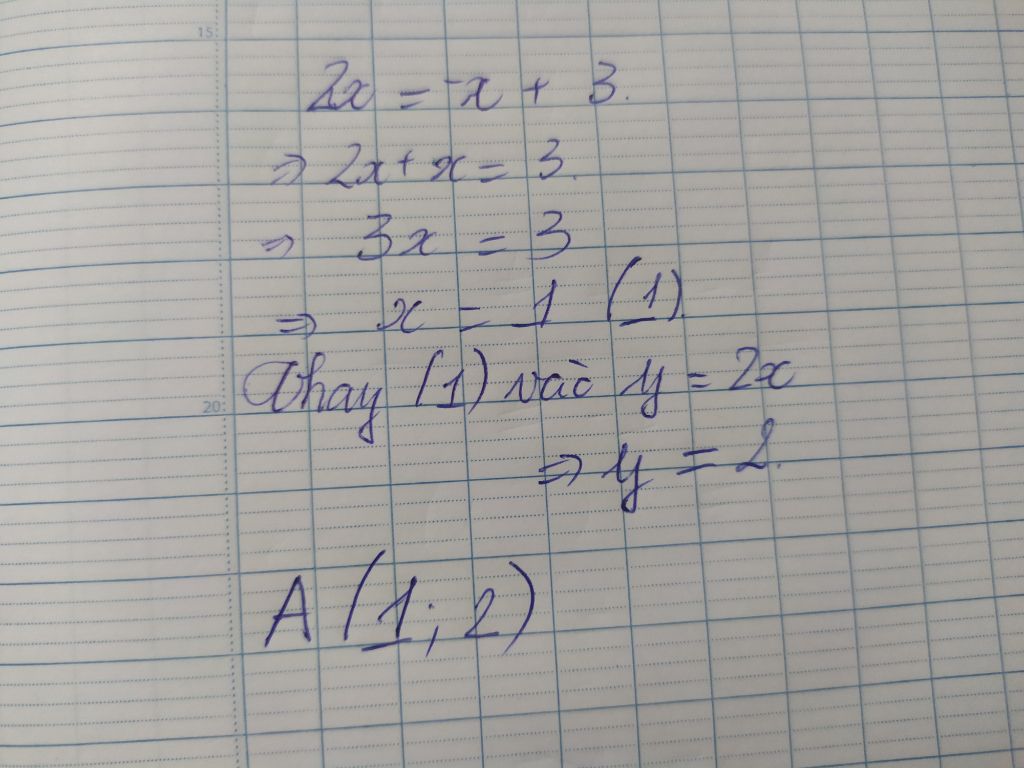 15
2x = -x + 3.
⇒ 2x + x = 3.
⇒ 3x = 3
⇒ x = 1 (1)
Thay (1) vào y = 2x
20
⇒ y = 2.
A (1; 2)